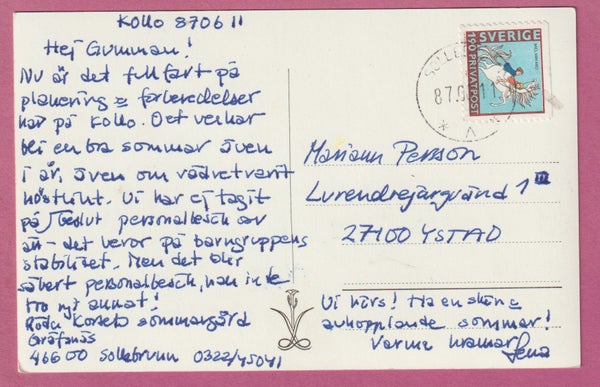 Kollo 870611
Hej Gumman!
Nu är det full fart på
planering & förberedelser
här på Kollo. Det verkar
bli en bra sommar även
i år, även om vädret varit
höstlikt. Vi har ej tagit
på beslut personalbesök av
än - det beror på barngruppens
stabilitet. Men det blir
säkert personalbesök, kan inte
tro nåt annat!
Röda Korsets sommargård
Gräfsnäs
46600 Sollebrunn 0322/45041
SVERIGE
190 PRIVATPOST
SOLLE
87.0 11
Mariann Persson
Lurendrejargränd 1 III
27100 YSTAD
Vi hörs! Ha en skön &
avkopplande sommar!
Varma kramar Lena